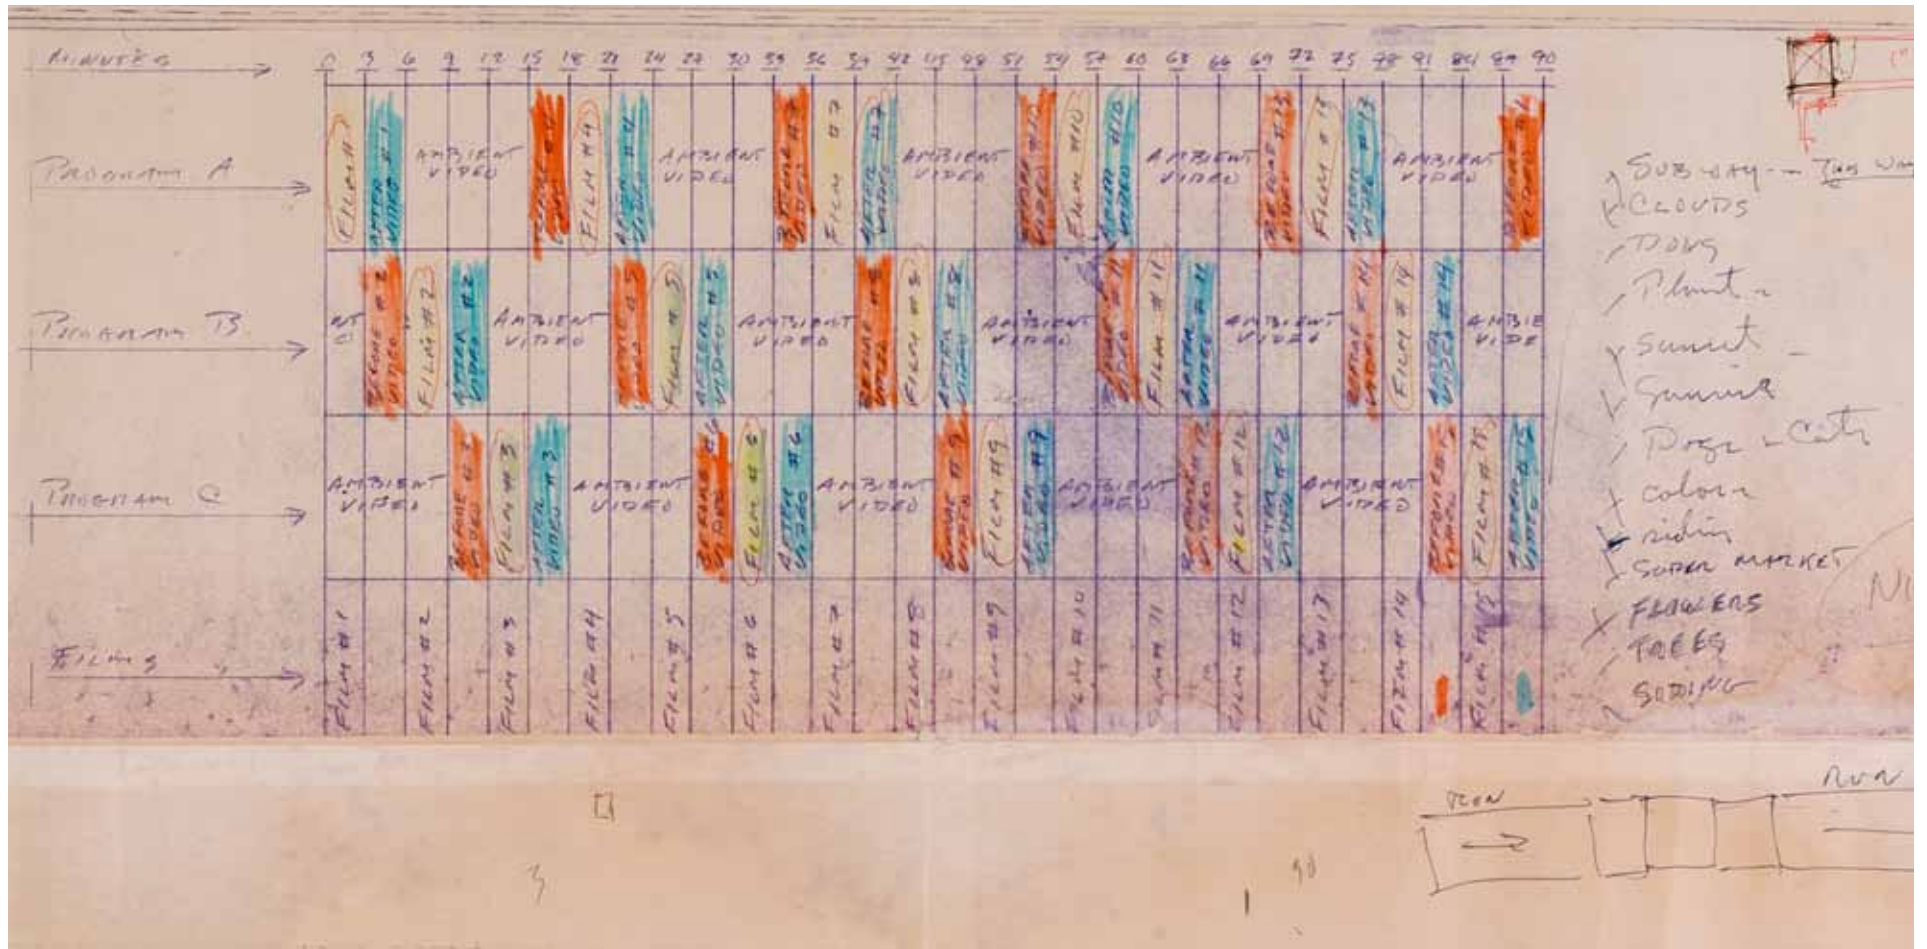 MINUTES 0 3 6 9 12 15 18 21 24 27 30 33 36 39 42 45 48 51 54 57 60 63 66 69 72 75 78 81 84 87 90
PROGRAM A
FILM #1
AFTER VIDEO #1
AMBIENT VIDEO
FILM #4
AFTER VIDEO #4
AMBIENT VIDEO
BEFORE VIDEO #7
FILM #7
AFTER VIDEO #7
AMBIENT VIDEO
BEFORE VIDEO #10
FILM #10
AFTER VIDEO #10
AMBIENT VIDEO
BEFORE VIDEO #13
FILM #13
AFTER VIDEO #13
AMBIENT VIDEO
BEFORE VIDEO #1
PROGRAM B
NT O
BEFORE VIDEO #2
FILM #2
AFTER VIDEO #2
AMBIENT VIDEO
BEFORE VIDEO #5
FILM #5
AFTER VIDEO #5
AMBIENT VIDEO
BEFORE VIDEO #8
FILM #8
AFTER VIDEO #8
AMBIENT VIDEO
BEFORE VIDEO #11
FILM #11
AFTER VIDEO #11
AMBIENT VIDEO
BEFORE VIDEO #14
FILM #14
AFTER VIDEO #14
AMBIE VIDE
PROGRAM C
AMBIENT VIDEO
BEFORE VIDEO #3
FILM #3
AFTER VIDEO #3
AMBIENT VIDEO
BEFORE VIDEO #6
FILM #6
AFTER VIDEO #6
AMBIENT VIDEO
BEFORE VIDEO #9
FILM #9
AFTER VIDEO #9
AMBIENT VIDEO
BEFORE VIDEO #12
FILM #12
AFTER VIDEO #12
AMBIENT VIDEO
BEFORE VIDEO #15
FILM #15
AFTER VIDEO #15
FILMS
FILM #1
FILM #2
FILM #3
FILM #4
FILM #5
FILM #6
FILM #7
FILM #8
FILM #9
FILM #10
FILM #11
FILM #12
FILM #13
FILM #14
FILM #15
SUBWAY -- THIS WAY
CLOUDS
Plant
Sunset
Sunrise
Dogs - Cats
colors
riding
SUPER MARKET
FLOWERS
TREES
RUN
RUN
3